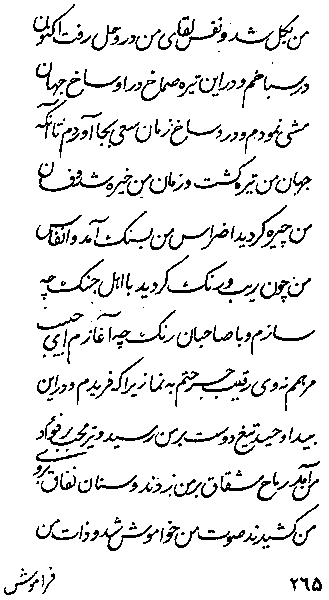 من بکل شد و نفس لقای من در وحل رفت اکنون
در سباخم و در این تیره صماخ در اوساخ جهان
مشی نمودم و در وساخ زمان سعی بجا آوردم تا آنکه
جهان من تیره گشت و زمان من خیره شد وفان
من چیره گردید اضراس من بسنگ آمد و انفاس
من چون ریب و رنگ گردید با اهل جنگ چه
سازم و با صاحبان رنگ چه آغازم ای حبیب
مرهم نه وی رقیب جستم به نماز زیرا که فریدم و در این
بیدا وحید تیغ دوست بر من رسید و تیر محب بر فؤاد
من آمد رماح شقاق بر من زدند و سنان نفاق بر روی
من کشیدند صوت من خواموش شد و ذات من
۲۶۵
فراموش